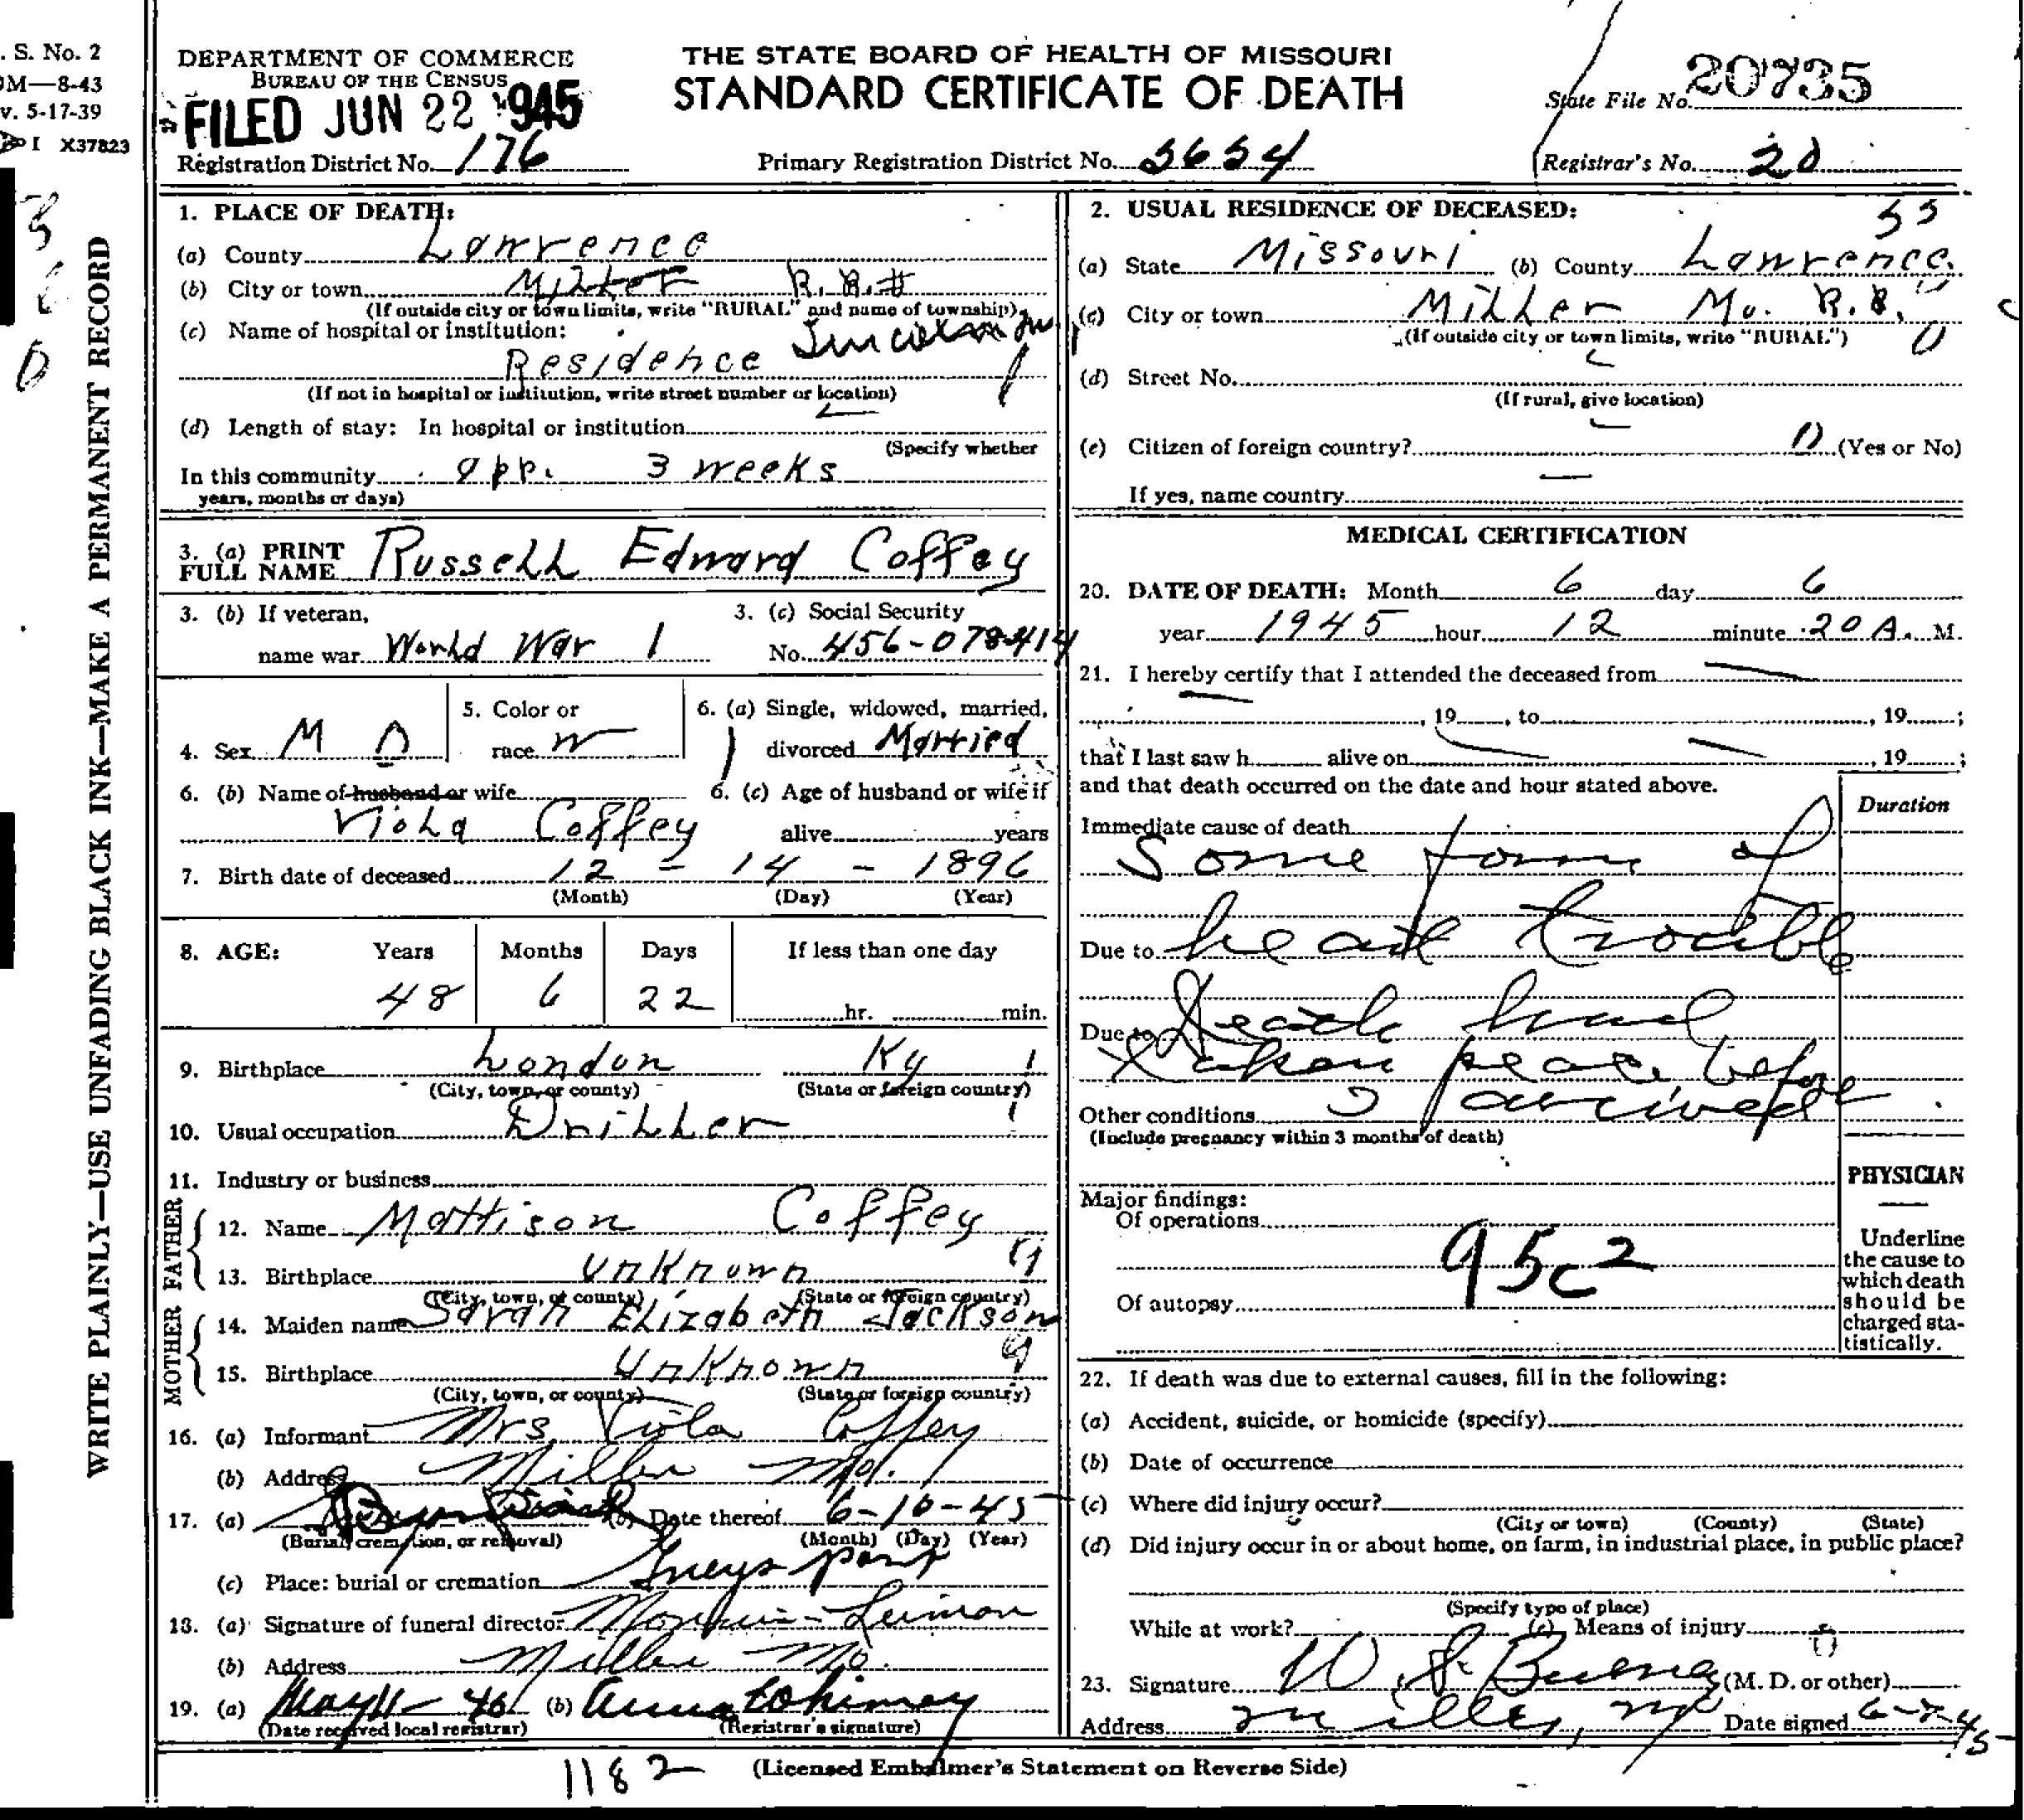 . S. No. 2
0M—8-43
v. 5-17-39
I X37823
WRITE PLAINLY—USE UNFADING BLACK INK—MAKE A PERMANENT RECORD
DEPARTMENT OF COMMERCE
BUREAU OF THE CENSUS
FILED JUN 22 1945
THE STATE BOARD OF HEALTH OF MISSOURI
STANDARD CERTIFICATE OF DEATH
State File No. 20735
Registration District No. 176
Primary Registration District No.
Registrar's No. 20
1. PLACE OF DEATH:
(a) County Lawrence
(b) City or town Miller R.R.#
(If outside city or town limits, write "RURAL" and name of township)
(c) Name of hospital or institution:
Residence
(If not in hospital or institution, write street number or location)
(d) Length of stay: In hospital or institution
(Specify whether
In this community app. 3 weeks
years, months or days)
2. USUAL RESIDENCE OF DECEASED:
55
(a) State Missouri (b) County Lawrence
(c) City or town Miller Mo. R.R.
(If outside city or town limits, write "RURAL")
0
(d) Street No.
(If rural, give location)
(e) Citizen of foreign country? (Yes or No)
If yes, name country
3. (a) PRINT FULL NAME Russell Edward Coffey
3. (b) If veteran,
name war World War 1
3. (c) Social Security
No. 456-078414
4. Sex M
5. Color or
race W
6. (a) Single, widowed, married,
divorced Married
6. (b) Name of husband or wife
Viola Coffey
6. (c) Age of husband or wife if
alive years
7. Birth date of deceased 12 - 14 - 1896
(Month) (Day) (Year)
8. AGE: Years Months Days If less than one day
48 6 22 hr. min.
9. Birthplace London Ky
(City, town, or county) (State or foreign country)
10. Usual occupation Driller
11. Industry or business
FATHER
12. Name Mattison Coffey
13. Birthplace unknown 9
(City, town, or county) (State or foreign country)
MOTHER
14. Maiden name Sarah Elizabeth Jackson
15. Birthplace unknown 9
(City, town, or county) (State or foreign country)
16. (a) Informant Mrs. Viola Coffey
(b) Address Miller Mo.
17. (a) (b) Date thereof 6-10-45
(Burial, cremation, or removal) (Month) (Day) (Year)
(c) Place: burial or cremation
18. (a) Signature of funeral director
(b) Address Miller Mo.
19. (a) May 11-46 (b) Anna
(Date received local registrar) (Registrar's signature)
MEDICAL CERTIFICATION
20. DATE OF DEATH: Month 6 day 6
year 1945 hour 12 minute 20 A. M.
21. I hereby certify that I attended the deceased from
, 19 , to , 19 ;
that I last saw h alive on , 19 ;
and that death occurred on the date and hour stated above.
Duration
Immediate cause of death
Some form of
Due to heart trouble
Due to Death had
taken place before
Other conditions I arrived
(Include pregnancy within 3 months of death)
PHYSICIAN
Underline
the cause to
which death
should be
charged sta-
tistically.
Major findings:
Of operations
95c2
Of autopsy
22. If death was due to external causes, fill in the following:
(a) Accident, suicide, or homicide (specify)
(b) Date of occurrence
(c) Where did injury occur?
(City or town) (County) (State)
(d) Did injury occur in or about home, on farm, in industrial place, in public place?
(Specify type of place)
While at work? (e) Means of injury
23. Signature W. S. (M. D. or other)
Address Miller, Mo Date signed 6-7-45
1182
(Licensed Embalmer's Statement on Reverse Side)